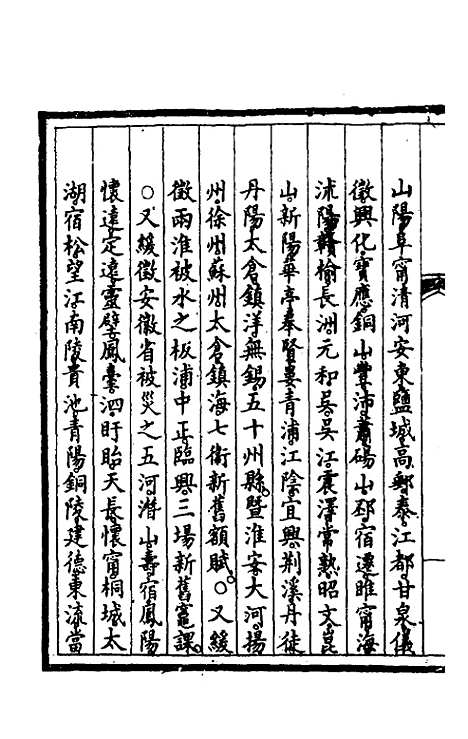 山陽阜甯清河安東鹽城高郵泰江都甘泉儀
徵興化寶應銅山豐沛蕭碭山邳宿遷睢甯海
沭陽贛榆長洲元和吳吳江震澤常熟昭文崑
山新陽華亭奉賢婁青浦江陰宜興荆溪丹徒
丹陽太倉鎮洋無錫五十州縣暨淮安大河揚
州徐州蘇州太倉鎮海七衛新舊額賦○又緩
徵兩淮被水之板浦中正臨興三場新舊竈課
○又緩徵安徽省被災之五河潛山壽宿鳳陽
懷遠定遠靈壁鳳臺泗盱眙天長懷甯桐城太
湖宿松望江南陵貴池青陽銅陵建德東流當